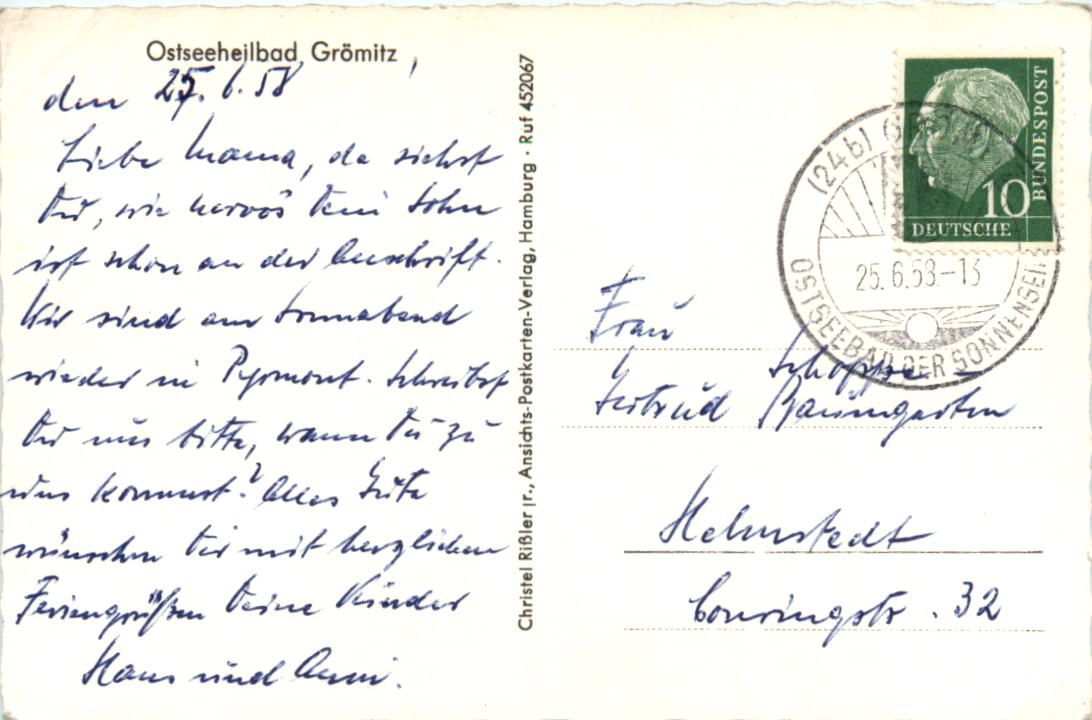 Ostseeheilbad Grömitz
den 25.6.58
Liebe Mama, da siehst
Du, wie nervös Dein Sohn
ist schon an der Anschrift.
Wir sind am Sonnabend
wieder in Pyrmont. Schreibst
Du uns bitte, wann Du zu
uns kommst? Alles Gute
wünschen Dir mit herzlichen
Feriengrüßen Deine Kinder
Hans und Anni.
Christel Rißler jr., Ansichts-Postkarten-Verlag, Hamburg · Ruf 452067
BUNDESPOST
10
DEUTSCHE
(24b)
25.6.58.-13
OSTSEEBAD DER SONNENSEITE
Frau
Schoppe –
Gertrud Baumgarten
Helmstedt
Conringstr. 32